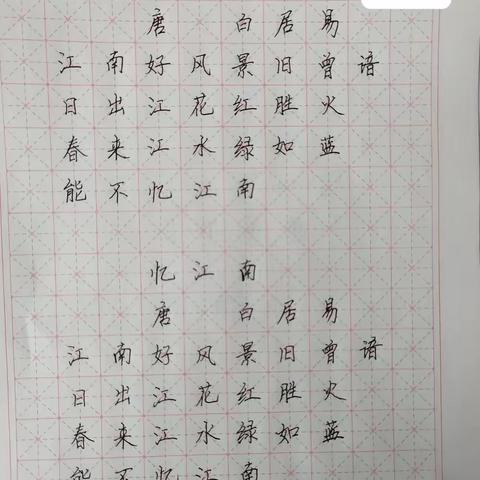 唐 白居易
江南好风景旧曾谙
日出江花红胜火
春来江水绿如蓝
能不忆江南
忆江南
唐 白居易
江南好风景旧曾谙
日出江花红胜火
春来江水绿如蓝
能不忆江南